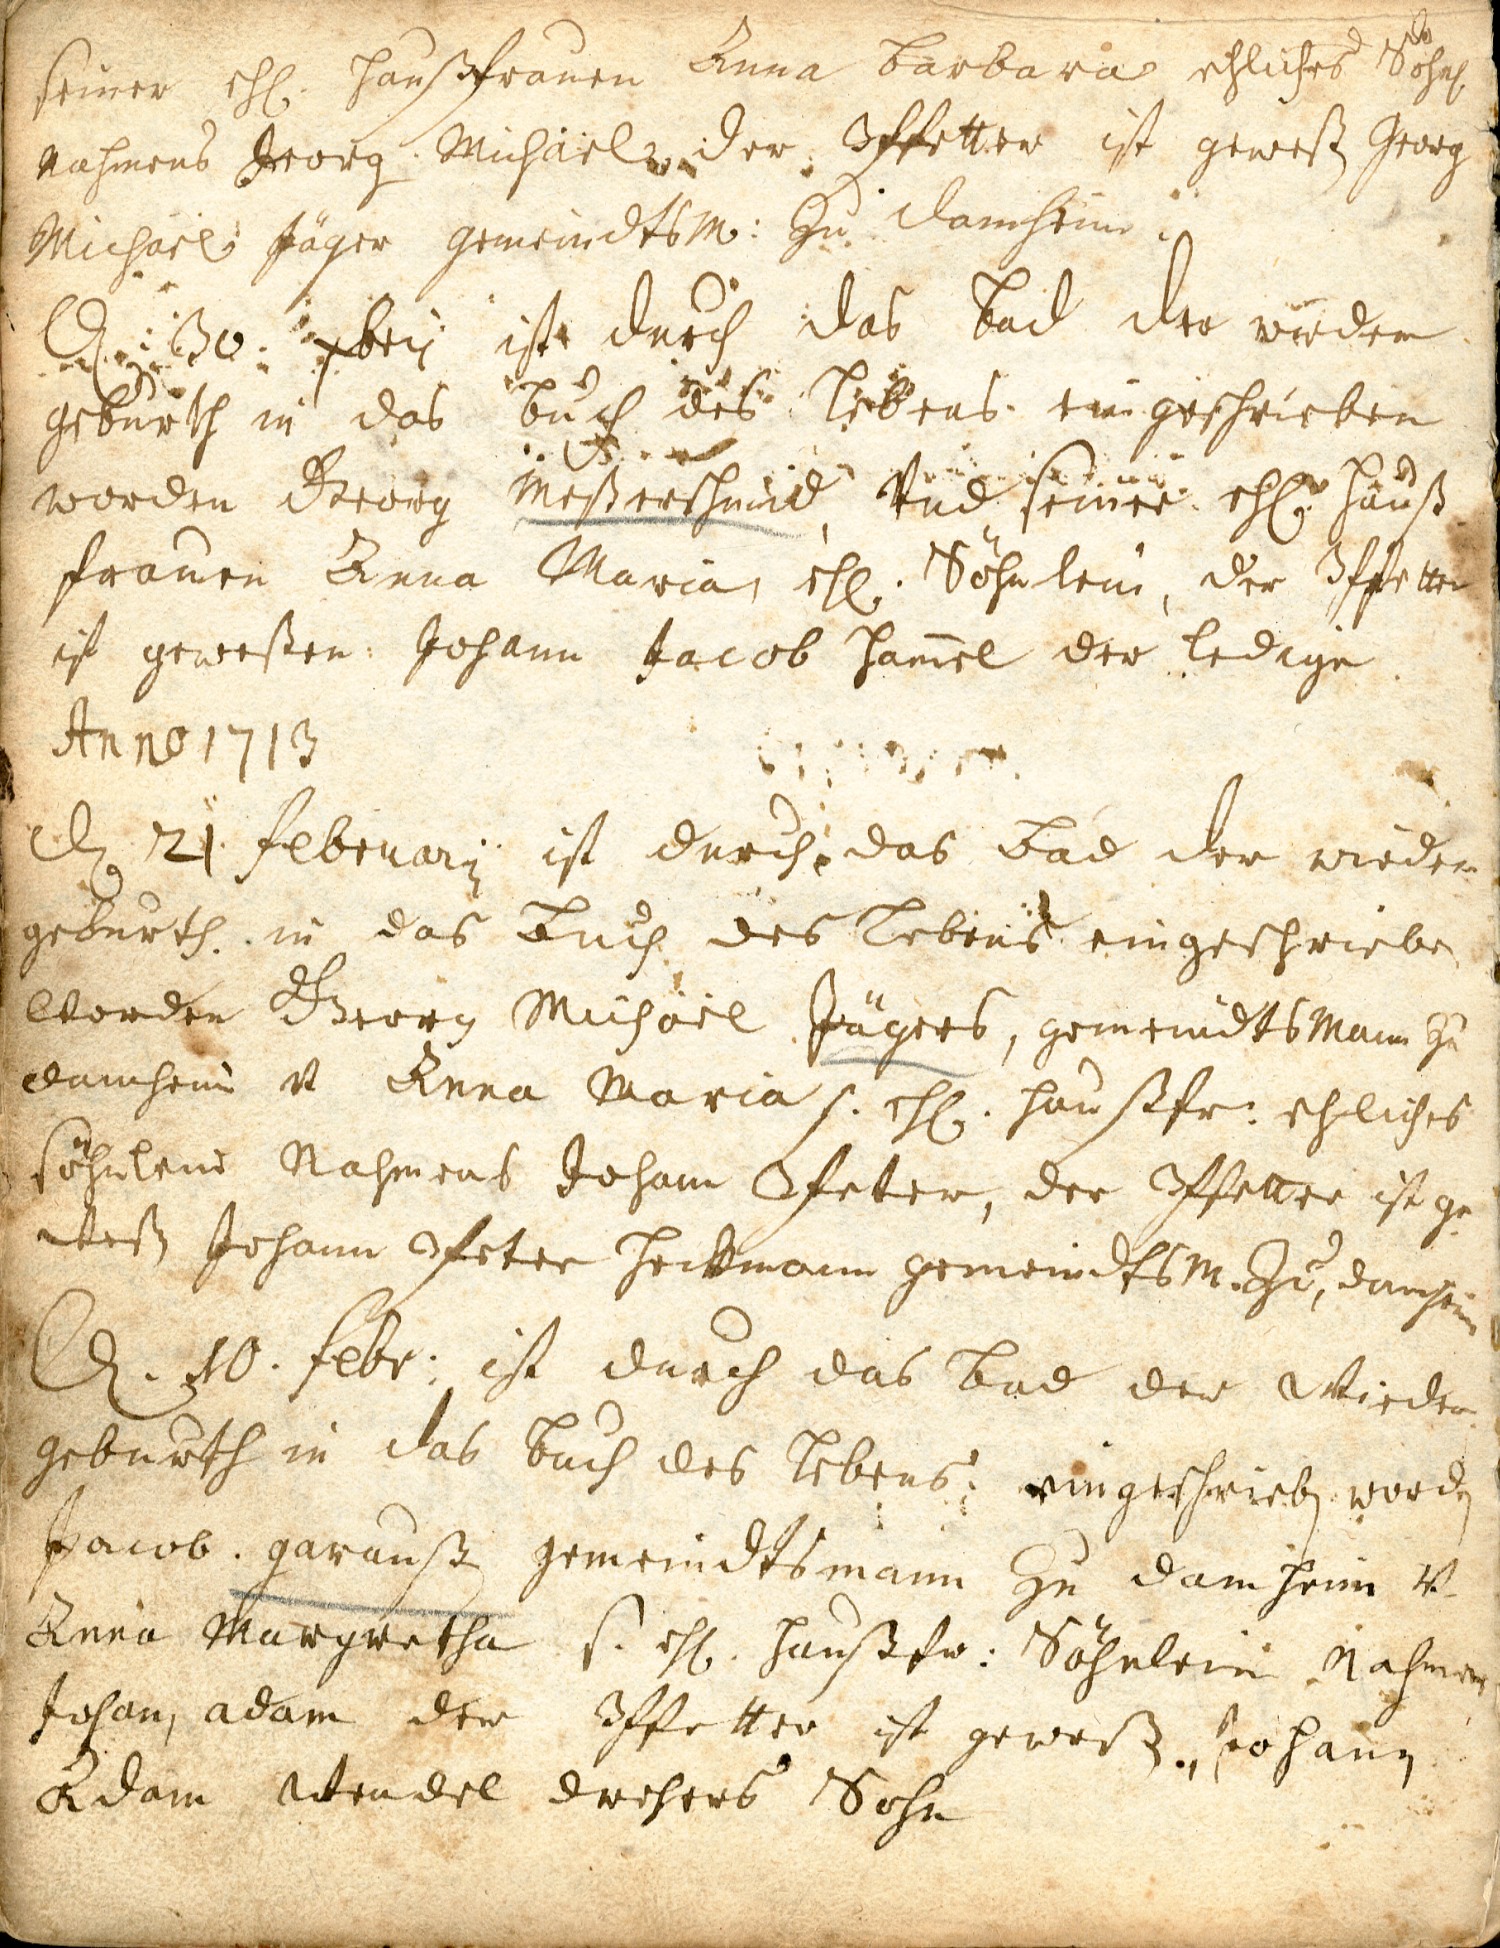 seiner ehl. haußfrauen Anna Barbara ehliches Söhnl
nahmens Georg Michäel, der Pfetter ist geweß Georg
Michäel Jäger gemeindtsM: Zu damheim.
D. 30. xbrij ist durch das Bad der wieder
geburth in das Buch des Lebens eingeschrieben
worden Georg Meßerschmid, Und seiner ehl. hauß
frauen Anna Maria, ehl. Söhnlein, der Pfetter
ist geweßen Johann Jacob ham̄el der ledige
Anno 1713
D. 21 februarij ist durch das Bad der wieder
geburth in das Buch des Lebens eingeschriebe
Worden Georg Michäel Jägers, gemeindtsMann Zu
damheim v Anna Maria s. ehl. haußfr: ehliches
söhnlein Nahmens Johann Peter, der Pfetter ist ge
weß Johann Peter heckmann gemeindtsM. Zu, damheim
D. 10. febr: ist durch das Bad der Wieder
geburth in das Buch des Lebens eingeschrieb word
Jacob garauß gemeindtsmann Zu damheim v
Anna Margretha s. ehl. haußfr: Söhnlein Nahmens
Johan, adam der Pfetter ist geweß, Johann
Adam Wendel drehers Sohn